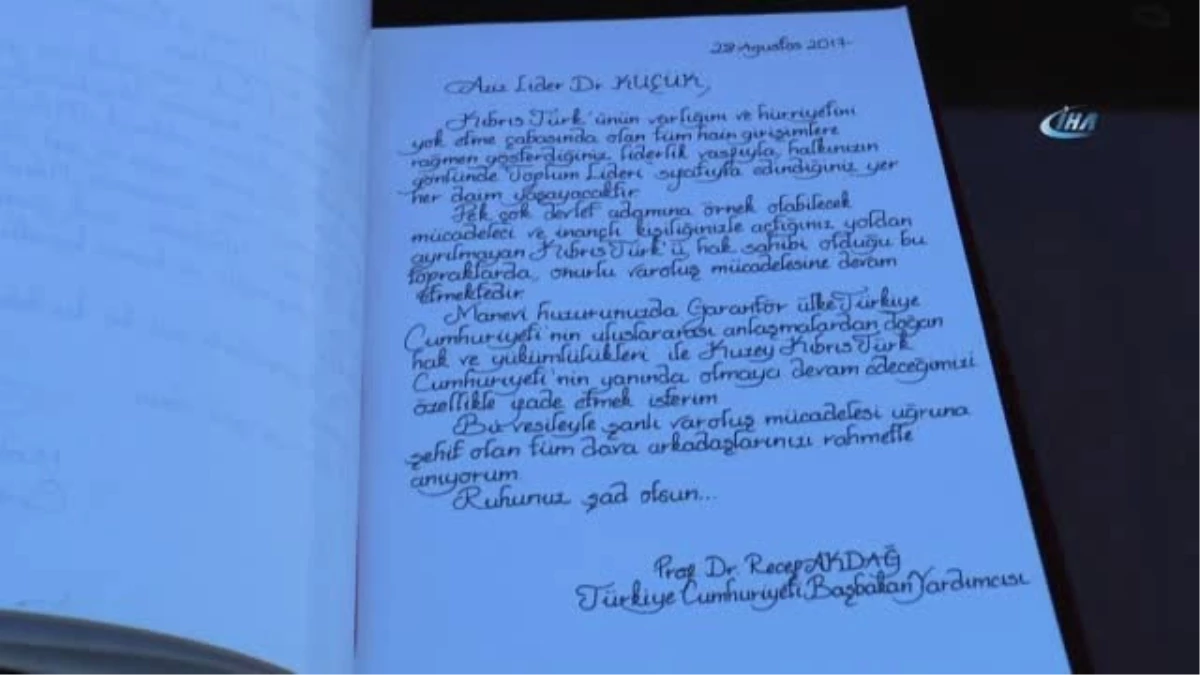 28 Ağustos 2017
Aziz Lider Dr. KÜÇÜK,
Kıbrıs Türk'ünün varlığını ve hürriyetini
yok etme çabasında olan tüm hain girişimlere
rağmen gösterdiğiniz liderlik vasfıyla, halkınızın
gönlünde Toplum Lideri sıfatıyla edindiğiniz yer
her daim yaşayacaktır.
Pek çok devlet adamına örnek olabilecek
mücadeleci ve inançlı kişiliğinizle açtığınız yoldan
ayrılmayan Kıbrıs Türk'ü, hak sahibi olduğu bu
topraklarda, onurlu varoluş mücadelesine devam
etmektedir.
Manevi huzurunuzda Garantör ülke Türkiye
Cumhuriyeti'nin uluslararası anlaşmalardan doğan
hak ve yükümlülükleri ile Kuzey Kıbrıs Türk
Cumhuriyeti'nin yanında olmaya devam edeceğimizi
özellikle ifade etmek isterim.
Bu vesileyle şanlı varoluş mücadelesi uğruna
şehit olan tüm dava arkadaşlarınızı rahmetle
anıyorum.
Ruhunuz şad olsun...
Prof. Dr. Recep AKDAĞ
Türkiye Cumhuriyeti Başbakan Yardımcısı
İHA